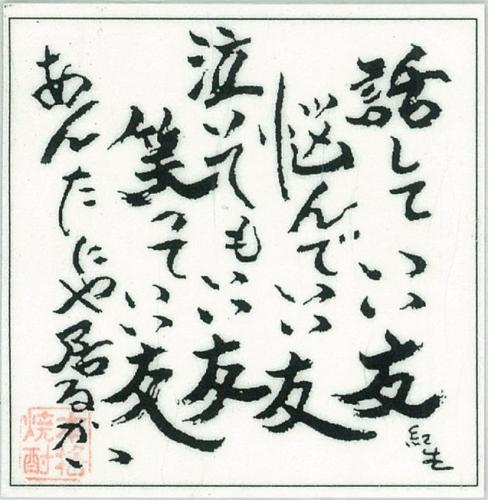 話していい友
悩んでいい友
泣いてもいい友
笑っていい友
あんたにや居るかい
紀生
本格
焼酎